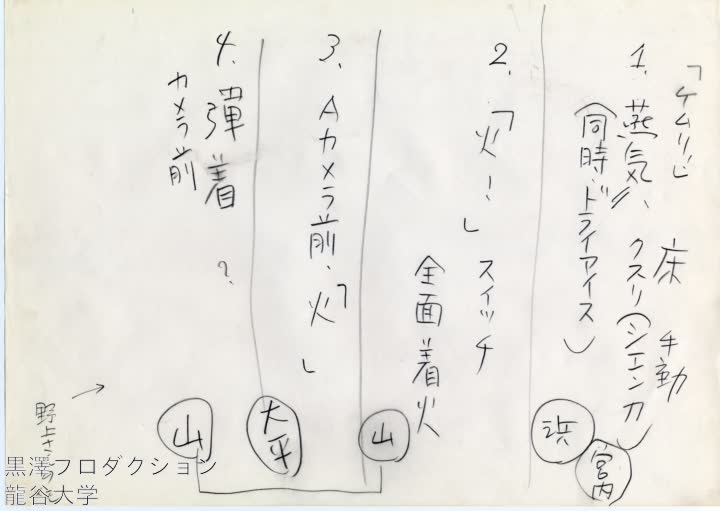 「ケムリ」
床 手動
1. 蒸気、クスリ(シエンカ)
(同時・ドライアイス)
浜
宮内
2. 「火!」スイッチ
全面着火
山
3. Aカメラ前、「火」
大平
4. 弾着 ?
カメラ前
山
黒澤プロダクション
龍谷大学